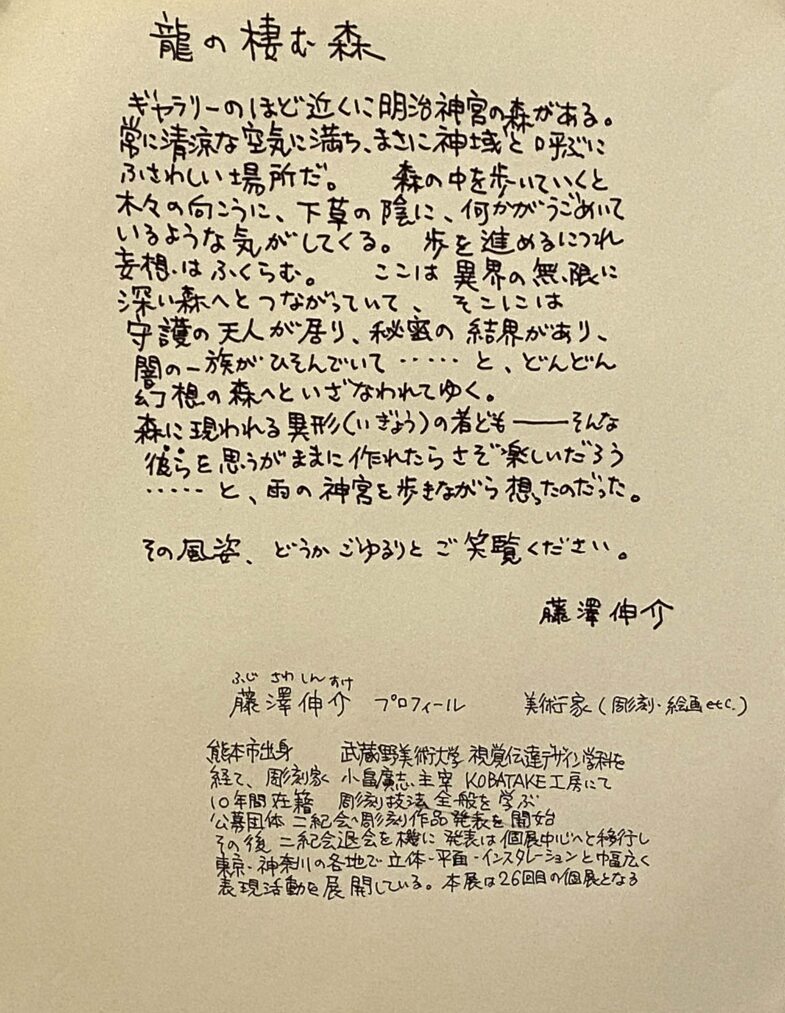 龍の棲む森
ギャラリーのほど近くに明治神宮の森がある。
常に清涼な空気に満ち、まさに神域と呼ぶに
ふさわしい場所だ。 森の中を歩いていくと
木々の向こうに、下草の陰に、何かがうごめいて
いるような気がしてくる。 歩を進めるにつれ
妄想はふくらむ。 ここは異界の無限に
深い森へとつながっていて、そこには
守護の天人が居り、秘密の結界があり、
闇の一族がひそんでいて……と、どんどん
幻想の森へといざなわれてゆく。
森に現われる異形(いぎょう)の者ども――そんな
彼らを思うがままに作れたらさぞ楽しいだろう
……と、雨の神宮を歩きながら想ったのだった。
その風姿、どうかごゆるりとご笑覧ください。
藤澤伸介
ふじさわしんすけ
藤澤伸介 プロフィール 美術家(彫刻・絵画etc.)
熊本市出身 武蔵野美術大学 視覚伝達デザイン学科を
経て、彫刻家 小畠廣志主宰 KOBATAKE工房にて
10年間在籍 彫刻技法全般を学ぶ
公募団体 二紀会へ彫刻作品発表を開始
その後 二紀会退会を機に発表は個展中心へと移行し
東京・神奈川の各地で立体・平面・インスタレーションと幅広く
表現活動を展開している。本展は26回目の個展となる